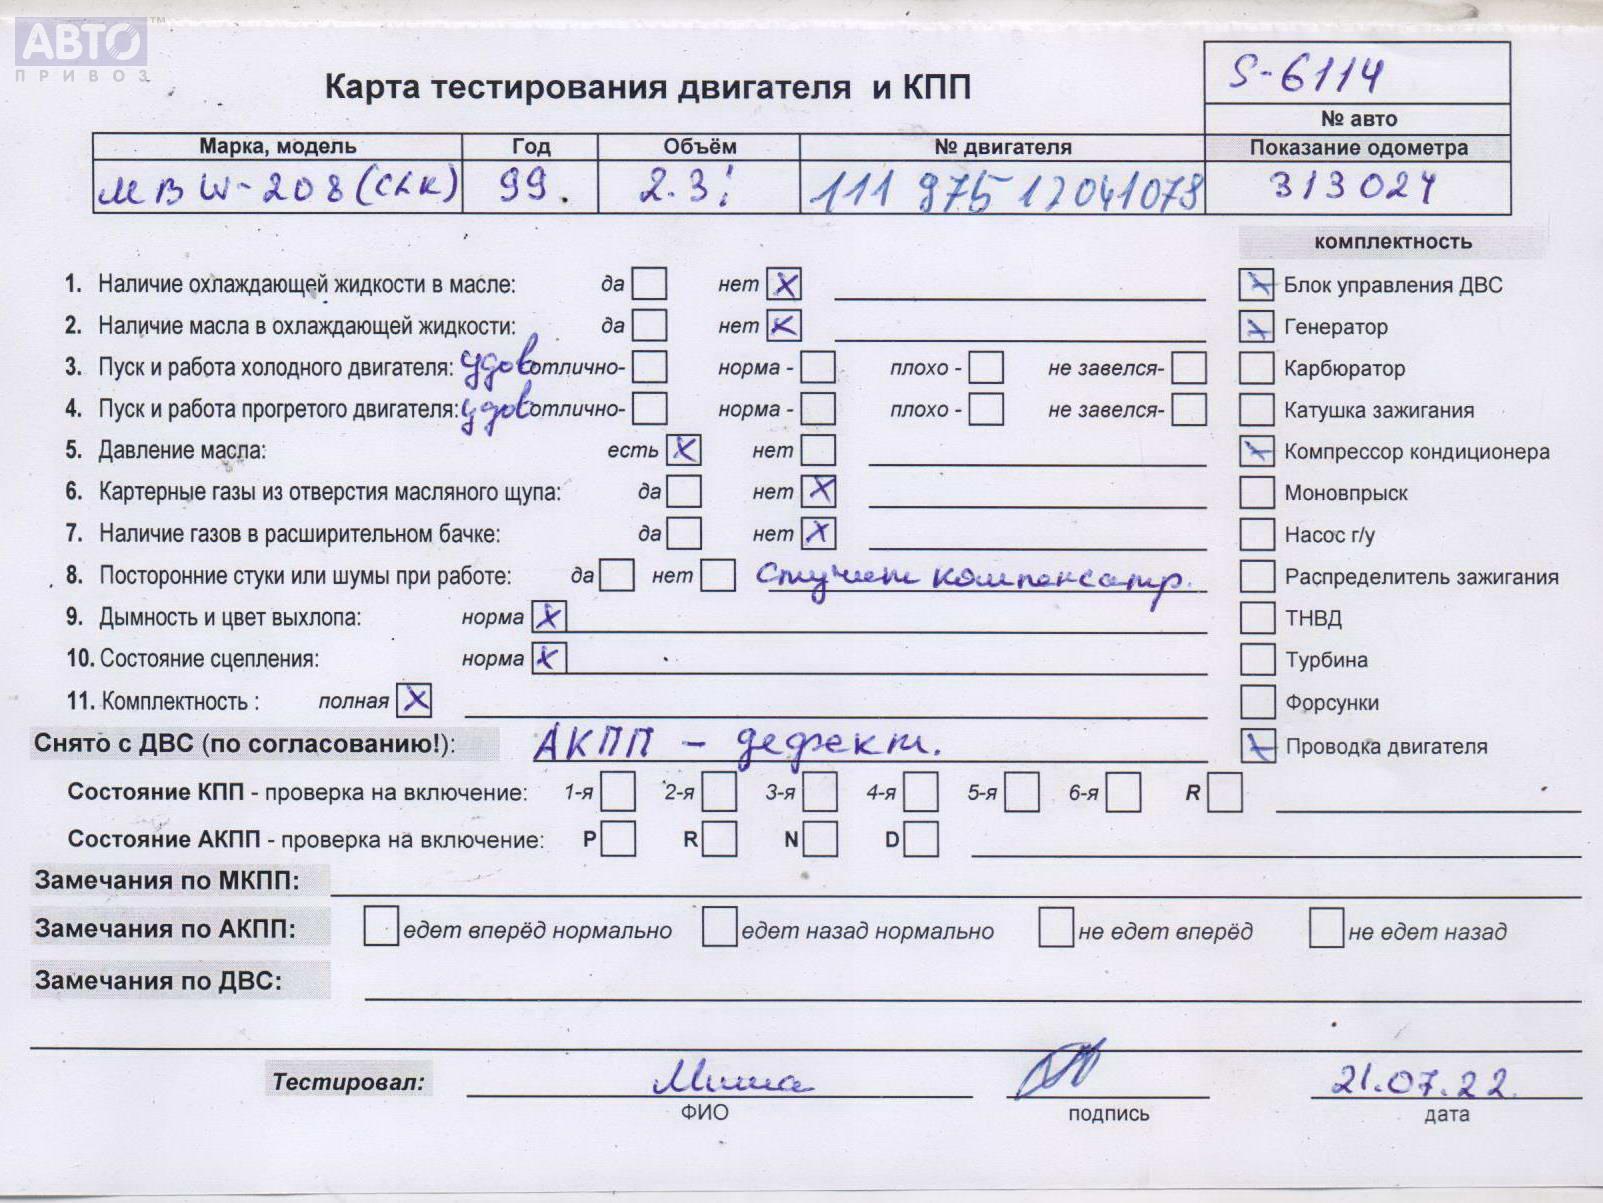 АВТО™
ПРИВОЗ
S-6114
Карта тестирования двигателя и КПП
№ авто
Марка, модель Год Объём № двигателя Показание одометра
МВ W-208 (CLK) 99. 2.3i 111 975 12041078 313024
комплектность
1. Наличие охлаждающей жидкости в масле: да нет X Блок управления ДВС X
2. Наличие масла в охлаждающей жидкости: да нет X Генератор X
3. Пуск и работа холодного двигателя: удов отлично- норма - плохо - не завелся- Карбюратор
4. Пуск и работа прогретого двигателя: удов отлично- норма - плохо - не завелся- Катушка зажигания
5. Давление масла: есть X нет X Компрессор кондиционера
6. Картерные газы из отверстия масляного щупа: да нет X Моновпрыск
7. Наличие газов в расширительном бачке: да нет X Насос г/у
8. Посторонние стуки или шумы при работе: да нет Стучит компенсатр. Распределитель зажигания
9. Дымность и цвет выхлопа: норма X ТНВД
10. Состояние сцепления: норма X Турбина
11. Комплектность : полная X Форсунки
Снято с ДВС (по согласованию!): АКПП - дефект. X Проводка двигателя
Состояние КПП - проверка на включение: 1-я 2-я 3-я 4-я 5-я 6-я R
Состояние АКПП - проверка на включение: P R N D
Замечания по МКПП:
Замечания по АКПП: едет вперёд нормально едет назад нормально не едет вперёд не едет назад
Замечания по ДВС:
Тестировал: Миша 21.07.22.
ФИО подпись дата